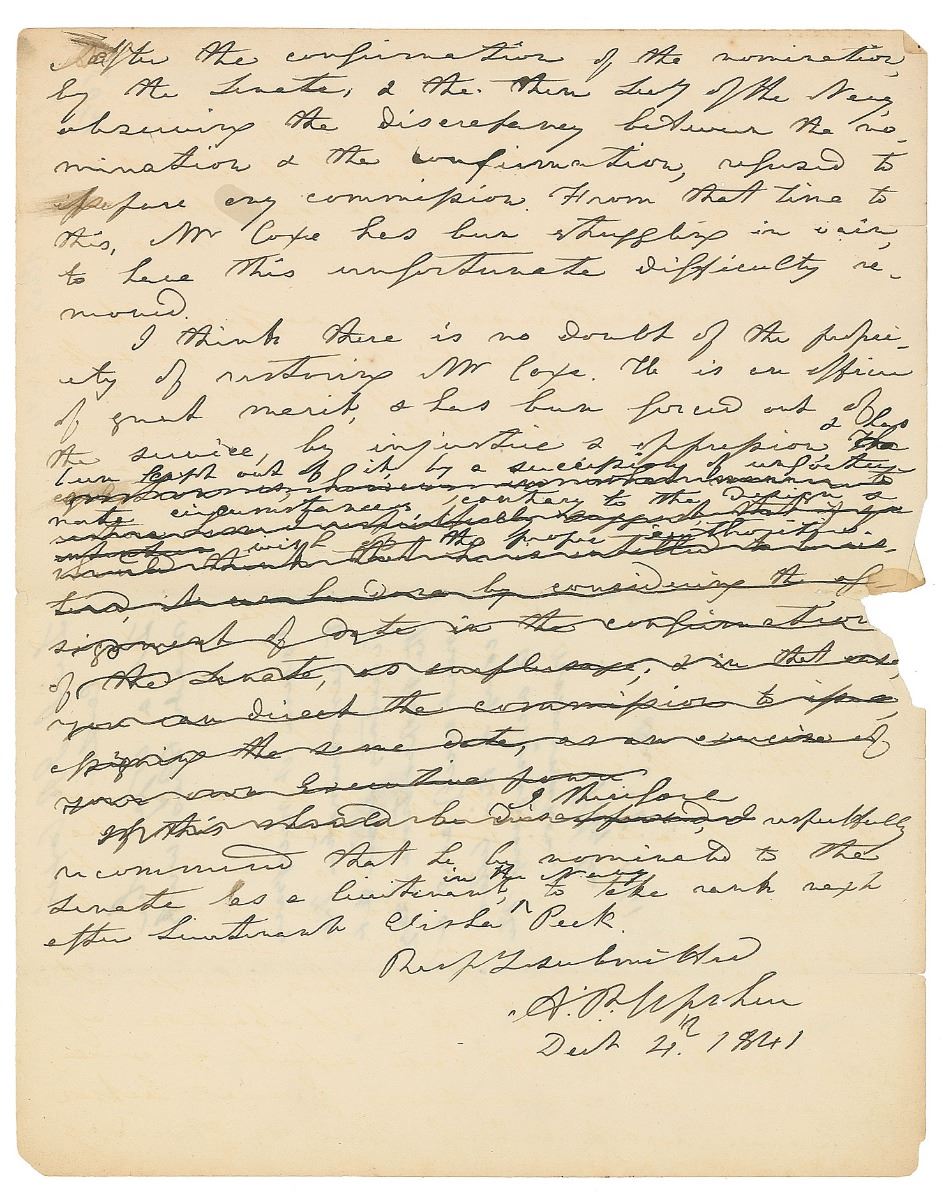 after the confirmation of the nomination
by the Senate, & the then Secy of the Navy
observing the discrepancy between the no-
mination & the confirmation, refused to
prepare any commission. From that time to
this, Mr Coxe has been struggling in vain,
to have this unfortunate difficulty re-
moved.
I think there is no doubt of the propri-
ety of restoring Mr Coxe. He is an officer
of great merit, & has been forced out of
the service, by injustice & oppression, & has
been kept out of it, by a succession of unfortu-
nate circumstances, contrary to the design &
with of the proper authorities
would think that he is entitled to
by considering the as-
signment of date in the confirmation
of the Senate, as surplusage, & in that case,
you can direct the commission to issue,
assigning the same date, as an exercise of
your own Executive power
I therefore
If this should be disapproved, I respectfully
recommend that he be nominated to the
in the Navy
Senate as a lieutenant, ^ to take rank next
after Lieutenant Elisha Peck.
Respy submitted
A. P. Upshur
Dec 4th. 1841